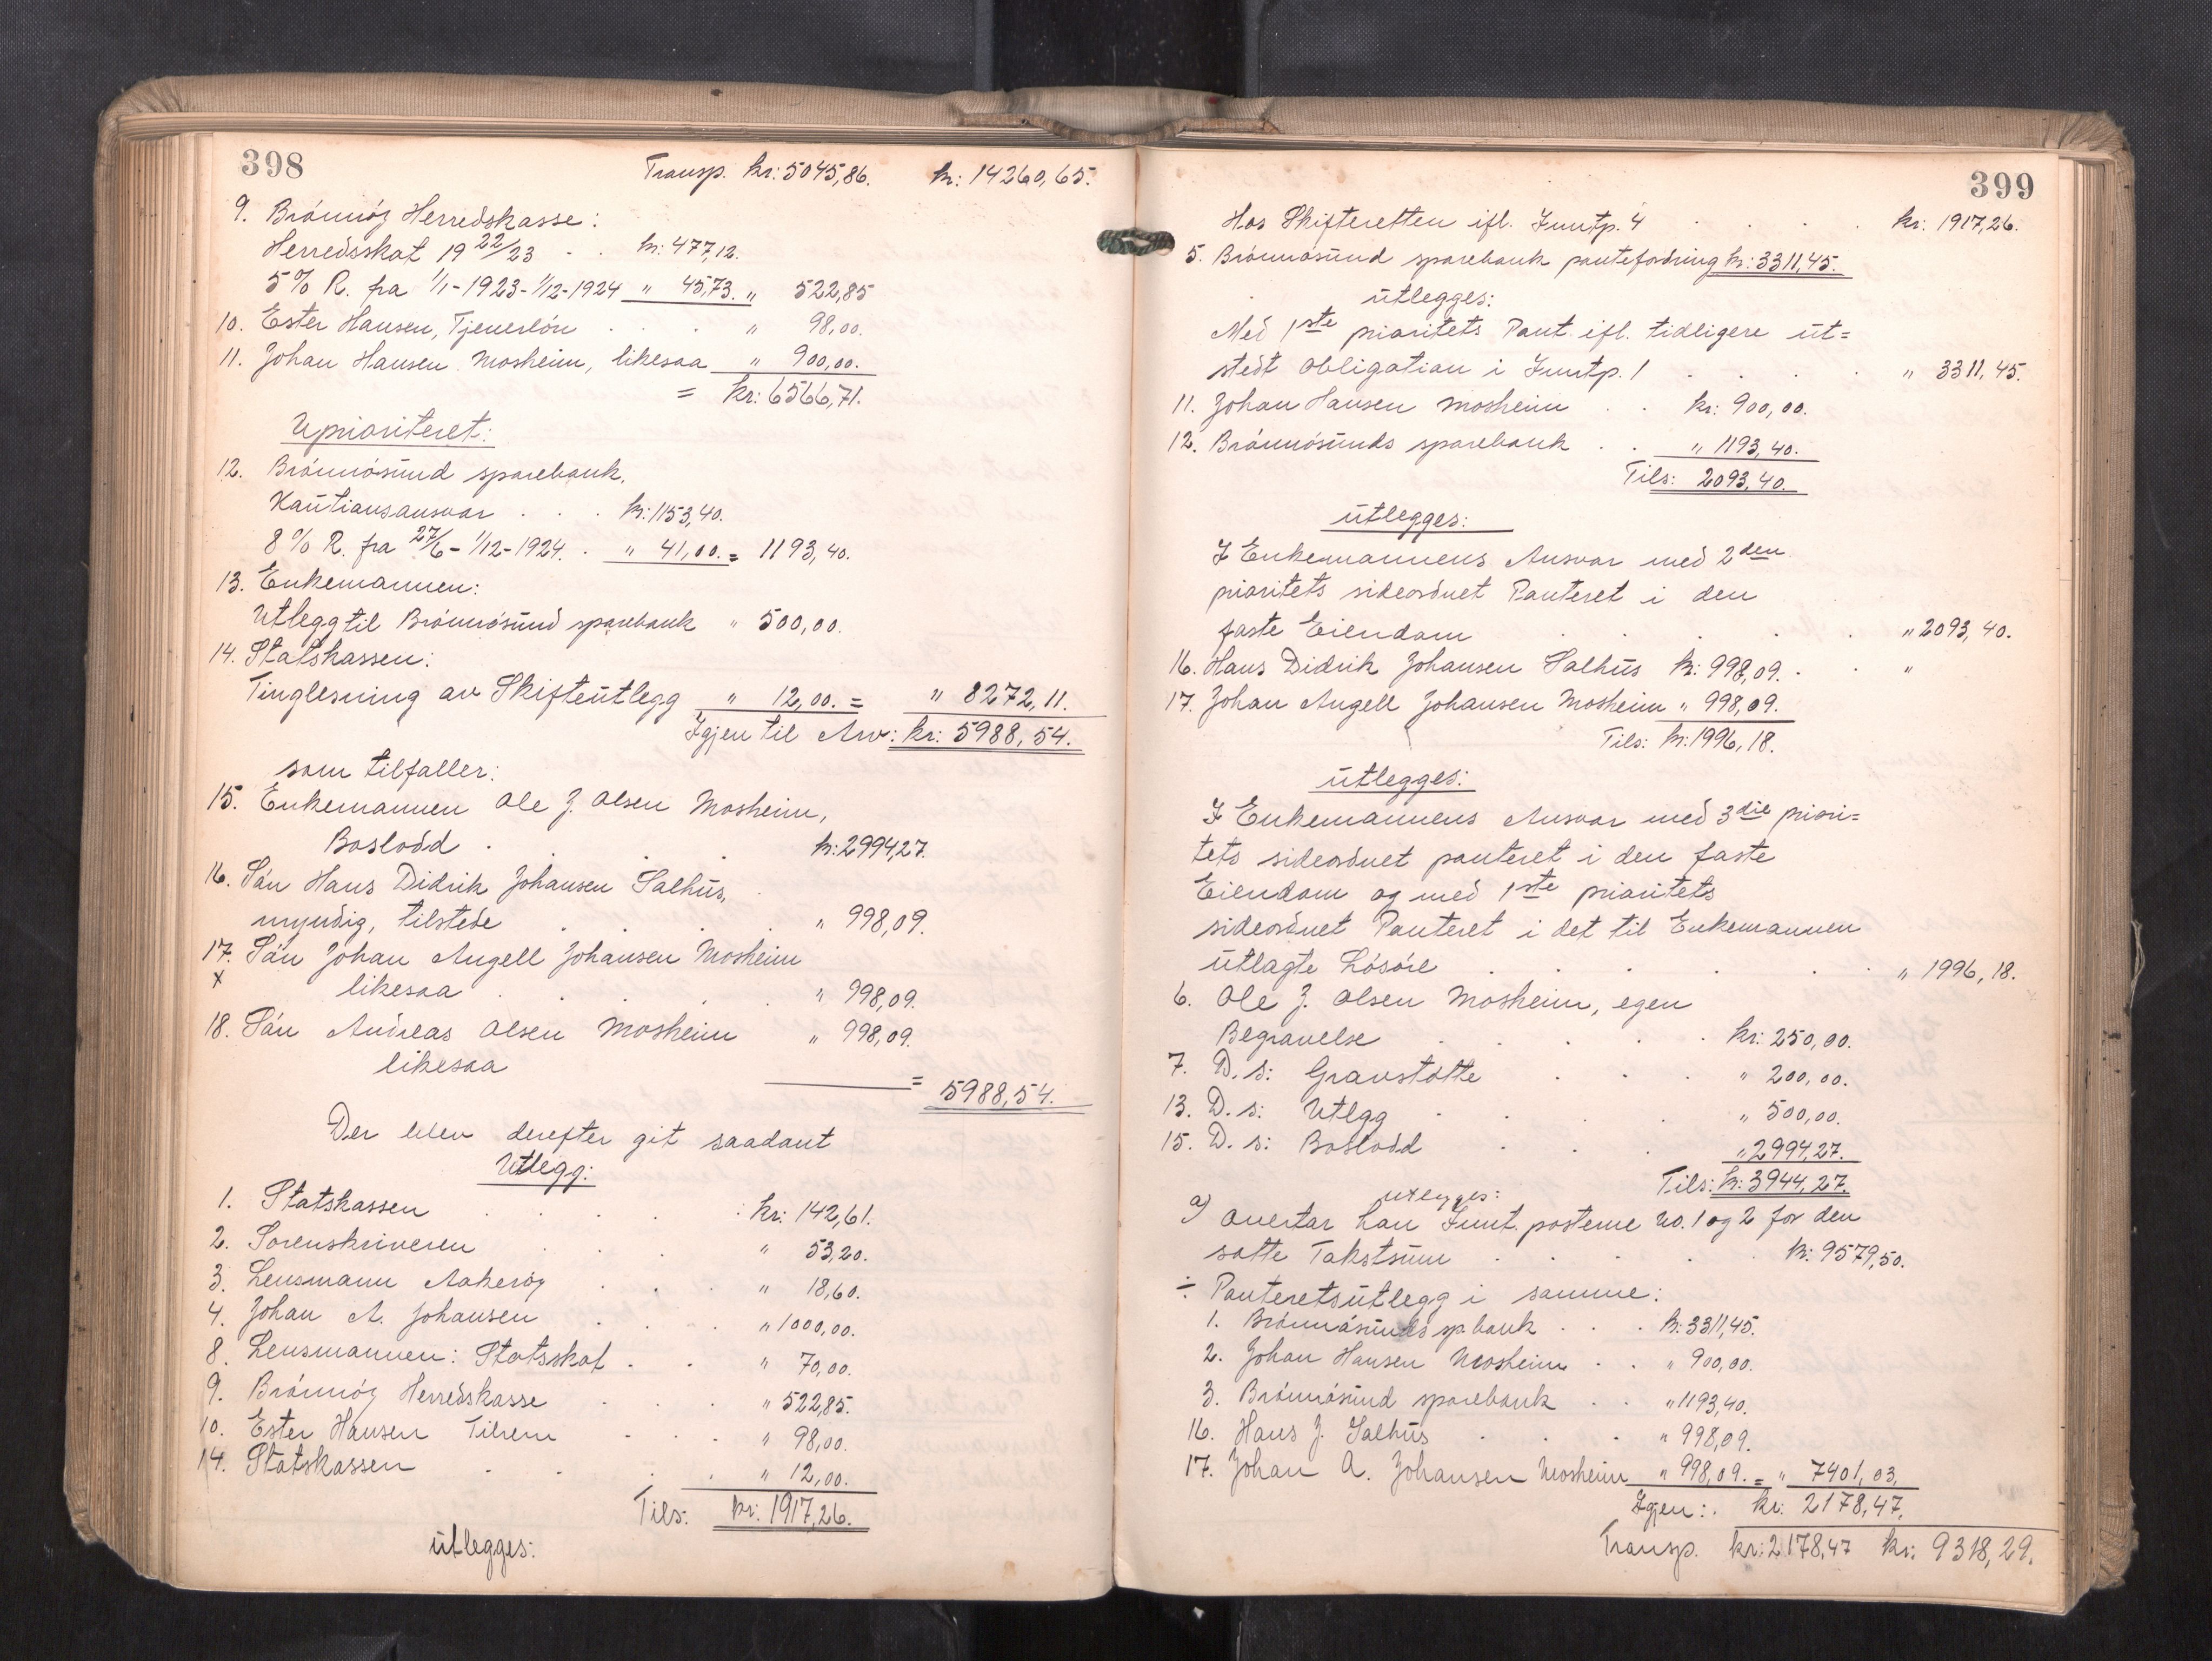 398
Transp. kr: 5045,86. kr: 14260,65.
9. Brönnöy Herredskasse:
Herredsskat 19 22/23 . . kr: 477,12.
5 % R. fra 1/1-1923-1/12-1924 " 45,73. " 522,85
10. Ester Hansen, Tjenerlön . . . " 98,00.
11. Johan Hansen Mosheim, likesaa " 900,00.
= kr: 6566,71.
Uprioriteret:
12. Brönnösund sparebank,
Kautionsansvar . . . kr: 1153,40.
8 % R. fra 27/6 - 1/12-1924. . " 41,00. = 1193,40.
13. Enkemannen:
Utlegg til Brönnösund sparebank " 500,00.
14. Statskassen:
Tinglesning av Skifteutlegg " 12,00. = " 8272,11.
Igjen til Arv: kr: 5988,54.
som tilfaller:
15. Enkemannen Ole J. Olsen Mosheim,
Boslodd . . . kr: 2994,27.
16. Sön Hans Didrik Johansen Salhus,
myndig, tilstede . . . " 998,09.
17. Sön Johan Angell Johansen Mosheim
x likesaa . . . . " 998,09.
18. Sön Andreas Olsen Mosheim " 998,09.
likesaa
= 5988,54.
Der blev derefter git saadant
Utlegg:
1. Statskassen . . . . kr: 142,61.
2. Sorenskriveren . . . " 53,20.
3. Lensmann Aakeröy . . . " 18,60.
4. Johan A. Johansen . . . " 1000,00.
8. Lensmannen: Statsskat . . " 70,00.
9. Brönnöy Herredskasse . . . " 522,85.
10. Ester Hansen Tilrem . . . " 98,00.
14. Statskassen . . . . " 12,00.
Tils: kr: 1917,26.
utlegges:
399
Hos Skifteretten ifl. Inntp. 4 . . . . kr: 1917,26.
5. Brönnösund sparebank pantefordring kr: 3311,45.
utlegges:
Med 1ste prioritets Pant ifl. tidligere ut=
stedt Obligation i Inntp. 1 . . . . " 3311,45.
11. Johan Hansen Mosheim . . kr: 900,00.
12. Brönnösunds sparebank . . " 1193,40.
Tils: 2093,40.
utlegges:
I Enkemannens Ansvar med 2den
prioritets sideordnet Panteret i den
faste Eiendom . . . . . " 2093,40.
16. Hans Didrik Johansen Salhus kr: 998,09. . . "
17. Johan Angell Johansen Mosheim " 998,09.
Tils: kr: 1996,18.
utlegges:
I Enkemannens Ansvar med 3die priori=
tets sideordnet panteret i den faste
Eiendom og med 1ste prioritets
sideordnet Panteret i det til Enkemannen
utlagte Lösöre . . . . . " 1996,18.
6. Ole J. Olsen Mosheim, egen
Begravelse . . . . . kr: 250,00.
7. D. s: Gravstötte . . . " 200,00.
13. D. s: Utlgg . . . . " 500,00.
15. D. s: Boslodd . . . " 2994,27.
Tils: kr: 3944,27.
utlegges:
a) Overtar han Innt. posterne No. 1 og 2 for den
satte Takstsum . . . . kr: 9579,50.
÷ Panteretsutlegg i samme:
1. Brönnösunds sp.bank . . . kr: 3311,45.
2. Johan Hansen Mosheim . . " 900,00.
3. Brönnösund sparebank . . " 1193,40.
16. Hans J. Salhus . . . " 998,09.
17. Johan A. Johansen Mosheim " 998,09. = " 7401,03.
Igjen: . kr: 2178,47.
Transp. kr: 2178,47 kr: 9318,29.